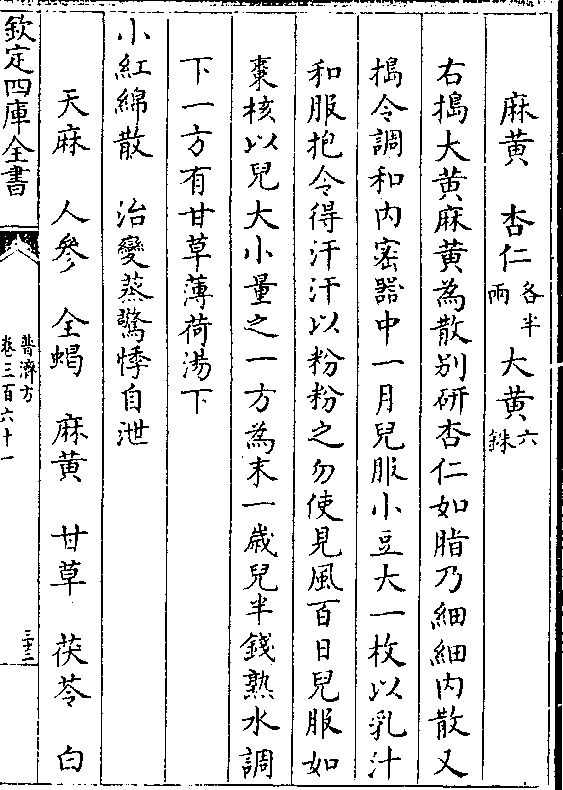 麻黄　杏仁各半兩　大黄六銖
右搗大黄麻黄為散别研杏仁如脂乃細細内散又
搗令調和内密器中一月兒服小豆大一枚以乳汁
和服抱令得汗汗以粉粉之勿使見風百日兒服如
棗核以兒大小量之一方為末一歲兒半錢熟水調
下一方有甘草薄荷湯下
小紅綿散　治變蒸驚悸自泄
天麻　人參　全蝎　麻黄　甘草　茯苓　白
欽定四庫全書
普濟方
卷三百六十一
三十二